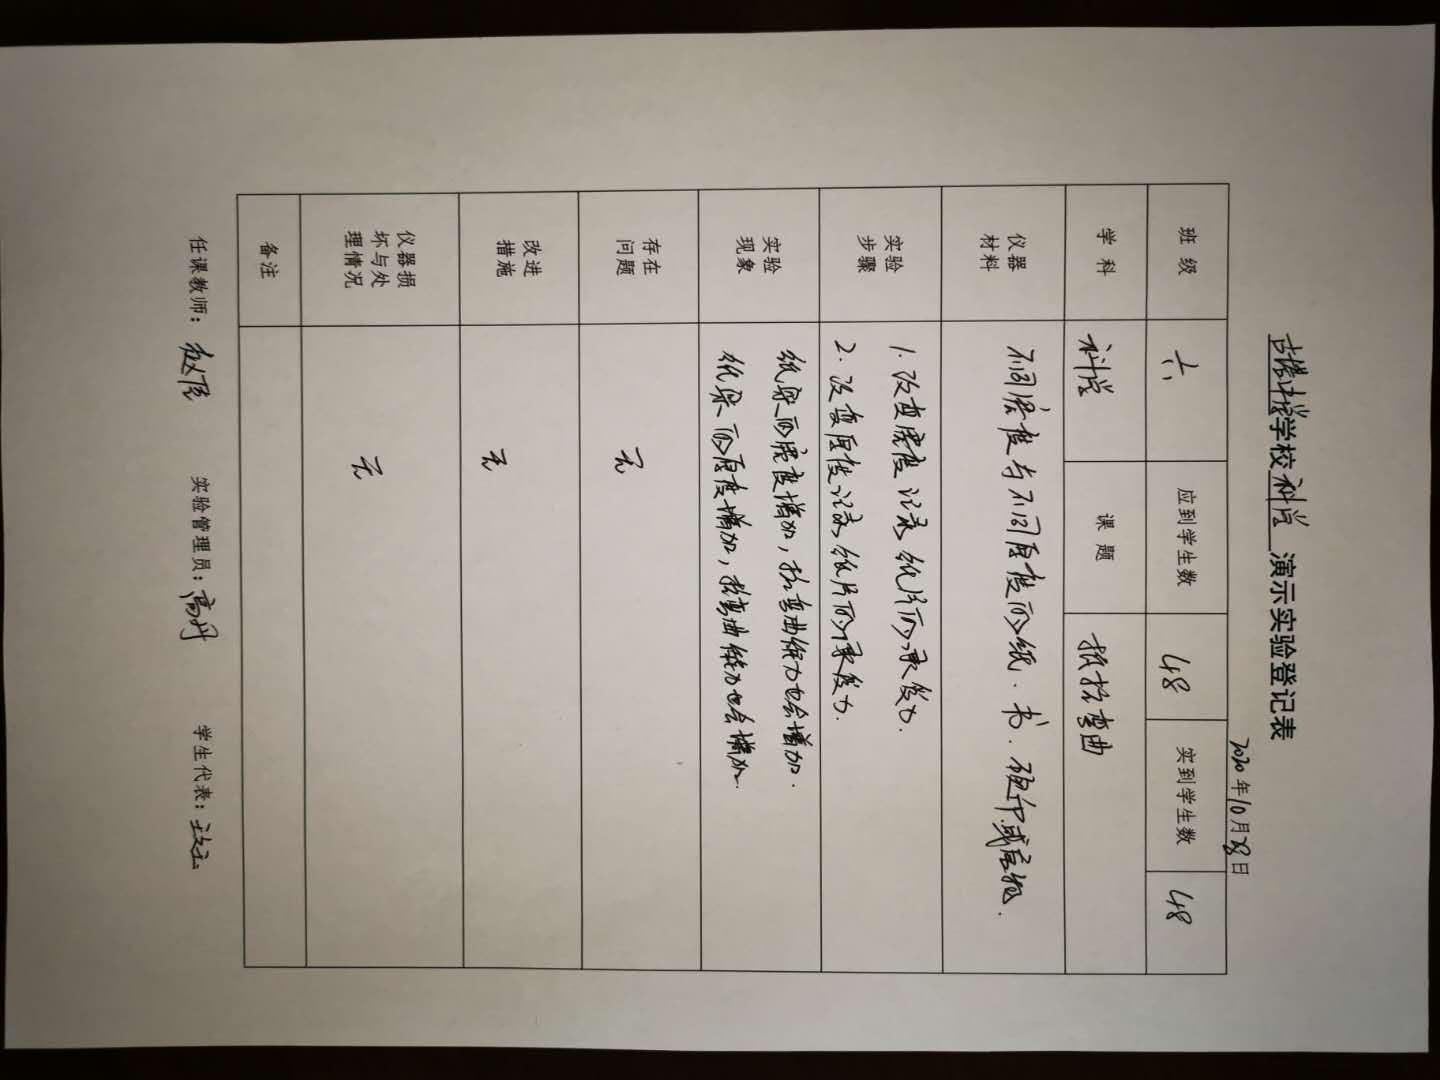 学校科学 演示实验登记表
2020年10月28日
班级 六 应到学生数 48 实到学生数 48
学科 科学 课题 抵抗弯曲
仪器材料 不同宽度与不同厚度的纸.书.硬币.
实验步骤 1.改变宽度记录纸片的承受力.
2.改变厚度记录纸片的承受力.
实验现象 纸梁的宽度增加,抗弯曲能力也会增加.
纸梁的厚度增加,抗弯曲能力也会增加.
存在问题 无
改进措施 无
仪器损坏与处理情况 无
备注
任课教师: 实验管理员:高丹 学生代表: